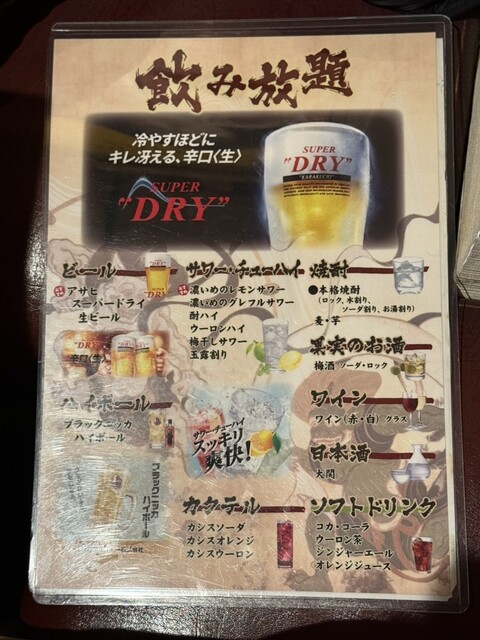 飲み放題
冷やすほどに
キレ冴える、辛口〈生〉
SUPER
"DRY"
SUPER
"DRY"
"KARAKUCHI"
ビール
アサヒ
スーパードライ
生ビール
辛口〈生〉
ハイボール
ブラックニッカ
ハイボール
ブラックニッカ
ハイボール
サワー・チューハイ
濃いめのレモンサワー
濃いめのグレフルサワー
酎ハイ
ウーロンハイ
梅干しサワー
玉露割り
サワー・チューハイ
スッキリ
爽快!
カクテル
カシスソーダ
カシスオレンジ
カシスウーロン
焼酎
●本格焼酎
(ロック、水割り、
ソーダ割り、お湯割り)
麦・芋
果実のお酒
梅酒 ソーダ・ロック
ワイン
ワイン(赤・白) グラス
日本酒
大関
ソフトドリンク
コカ・コーラ
ウーロン茶
ジンジャーエール
オレンジジュース